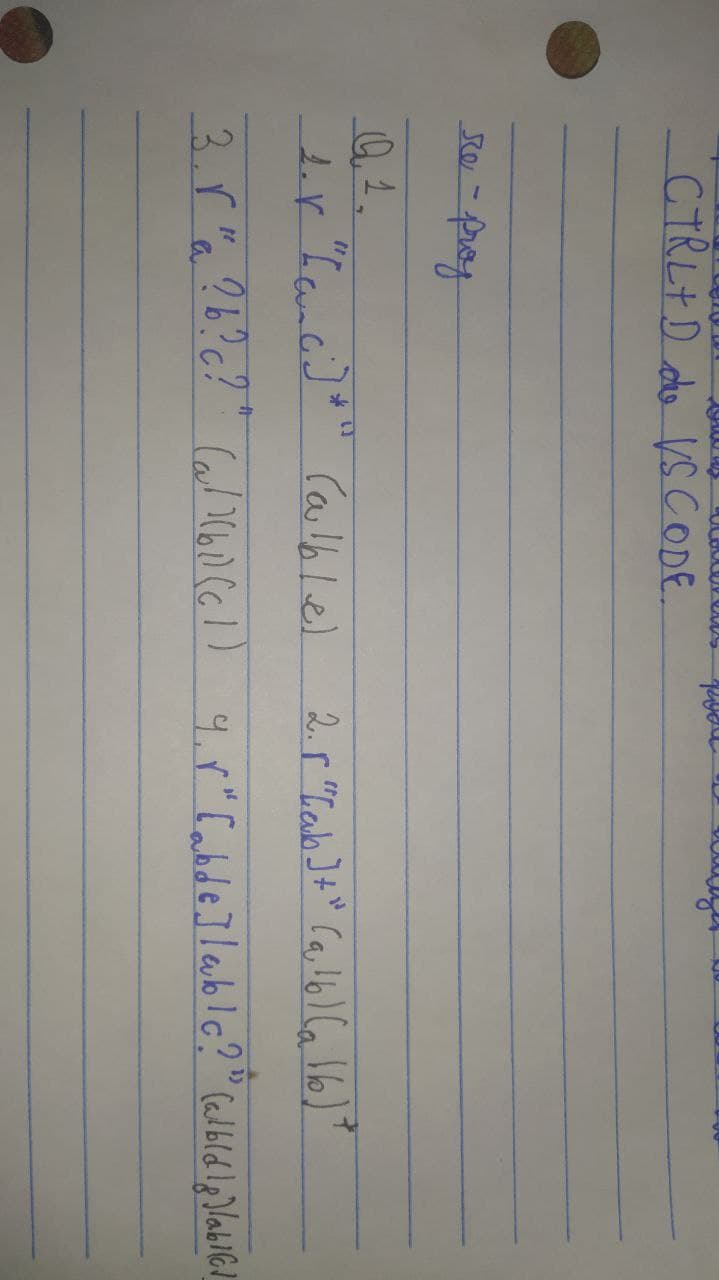 CTRL+D do VSCODE.
re-prog
Q.1.
1. r"[a-c]*" (a|b|c) 2. r"[ab]+" (a|b)(a|b)*
3. r"a?b?c?" (a|)(b|)(c|) 4. r"[abde]|ab|c?" (a|b|d|e)|ab|(c|